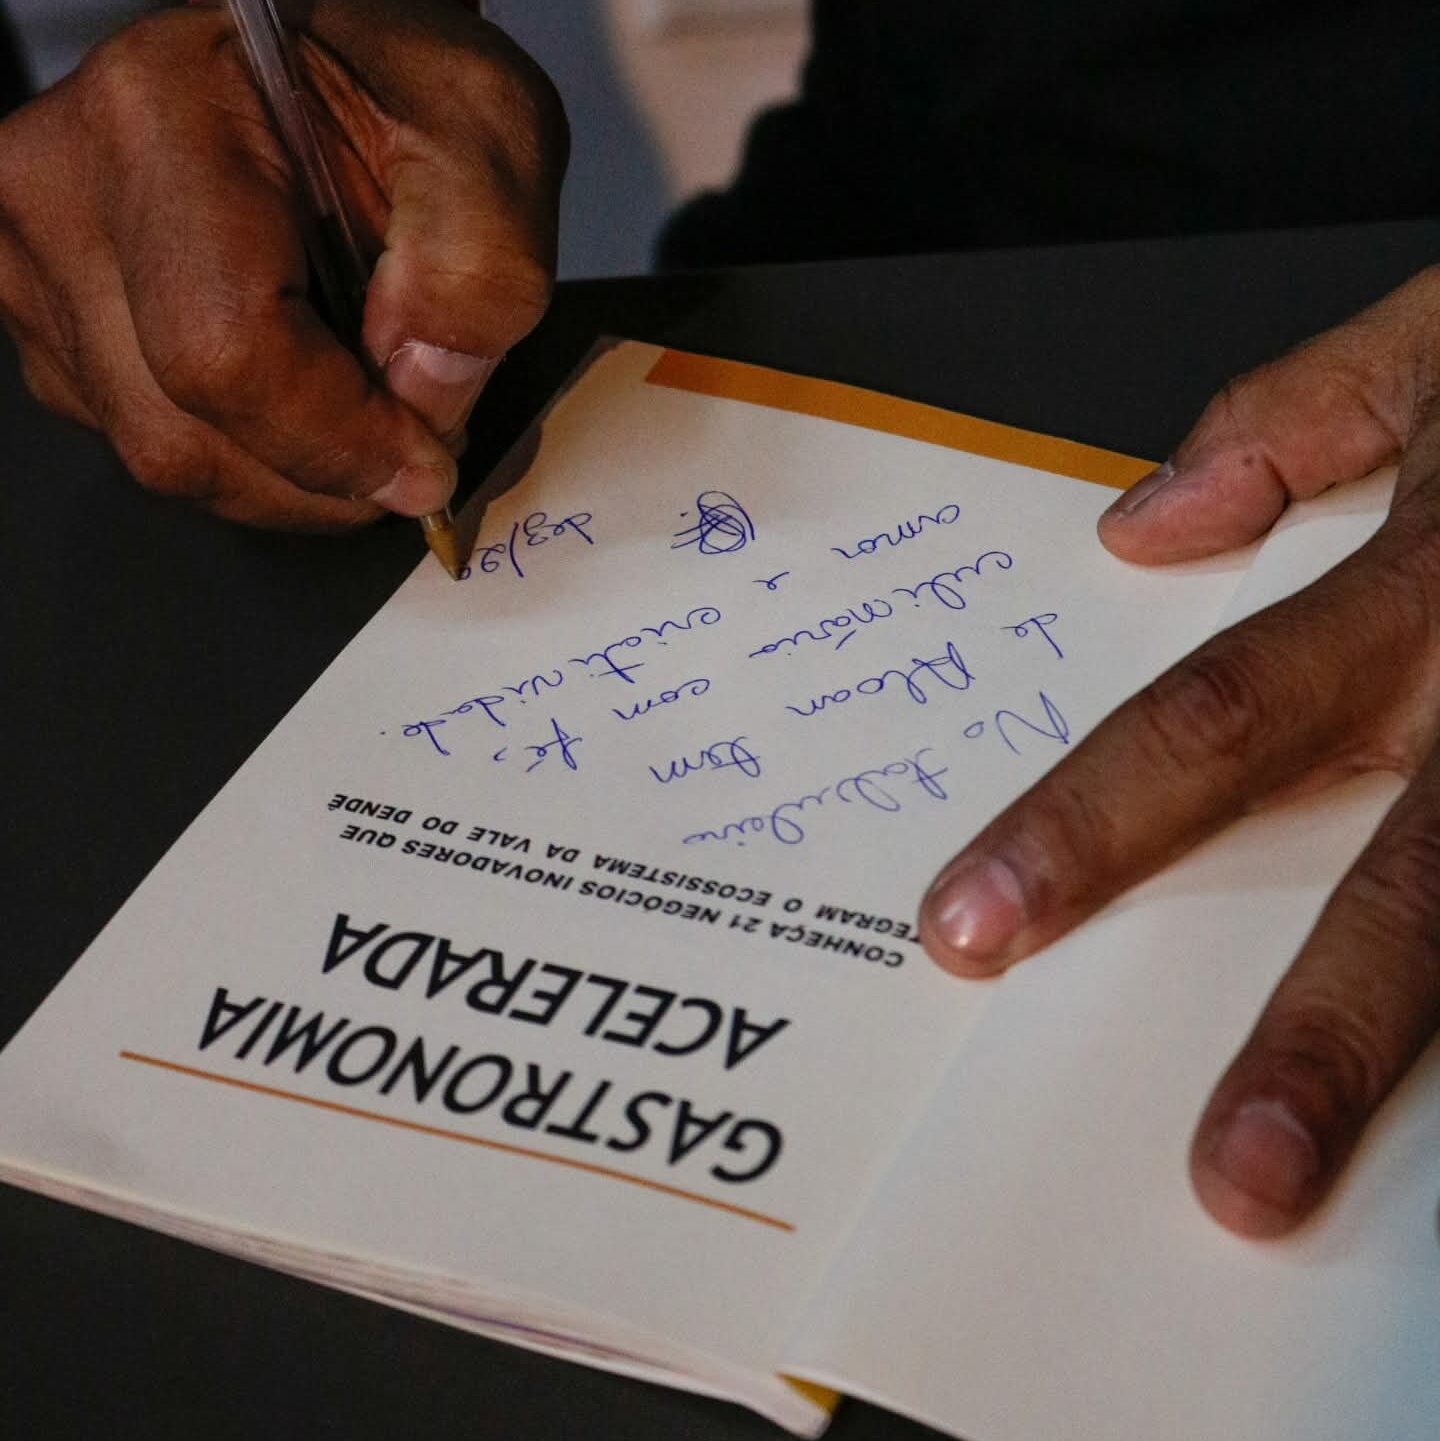 GASTRONOMIA
ACELERADA
CONHEÇA 21 NEGÓCIOS INOVADORES QUE
TEGRAM O ECOSSISTEMA DA VALE DO DENDÊ
No tabuleiro
de Aloan tem fé,
culinário com
amor e criatividade.
dez/22